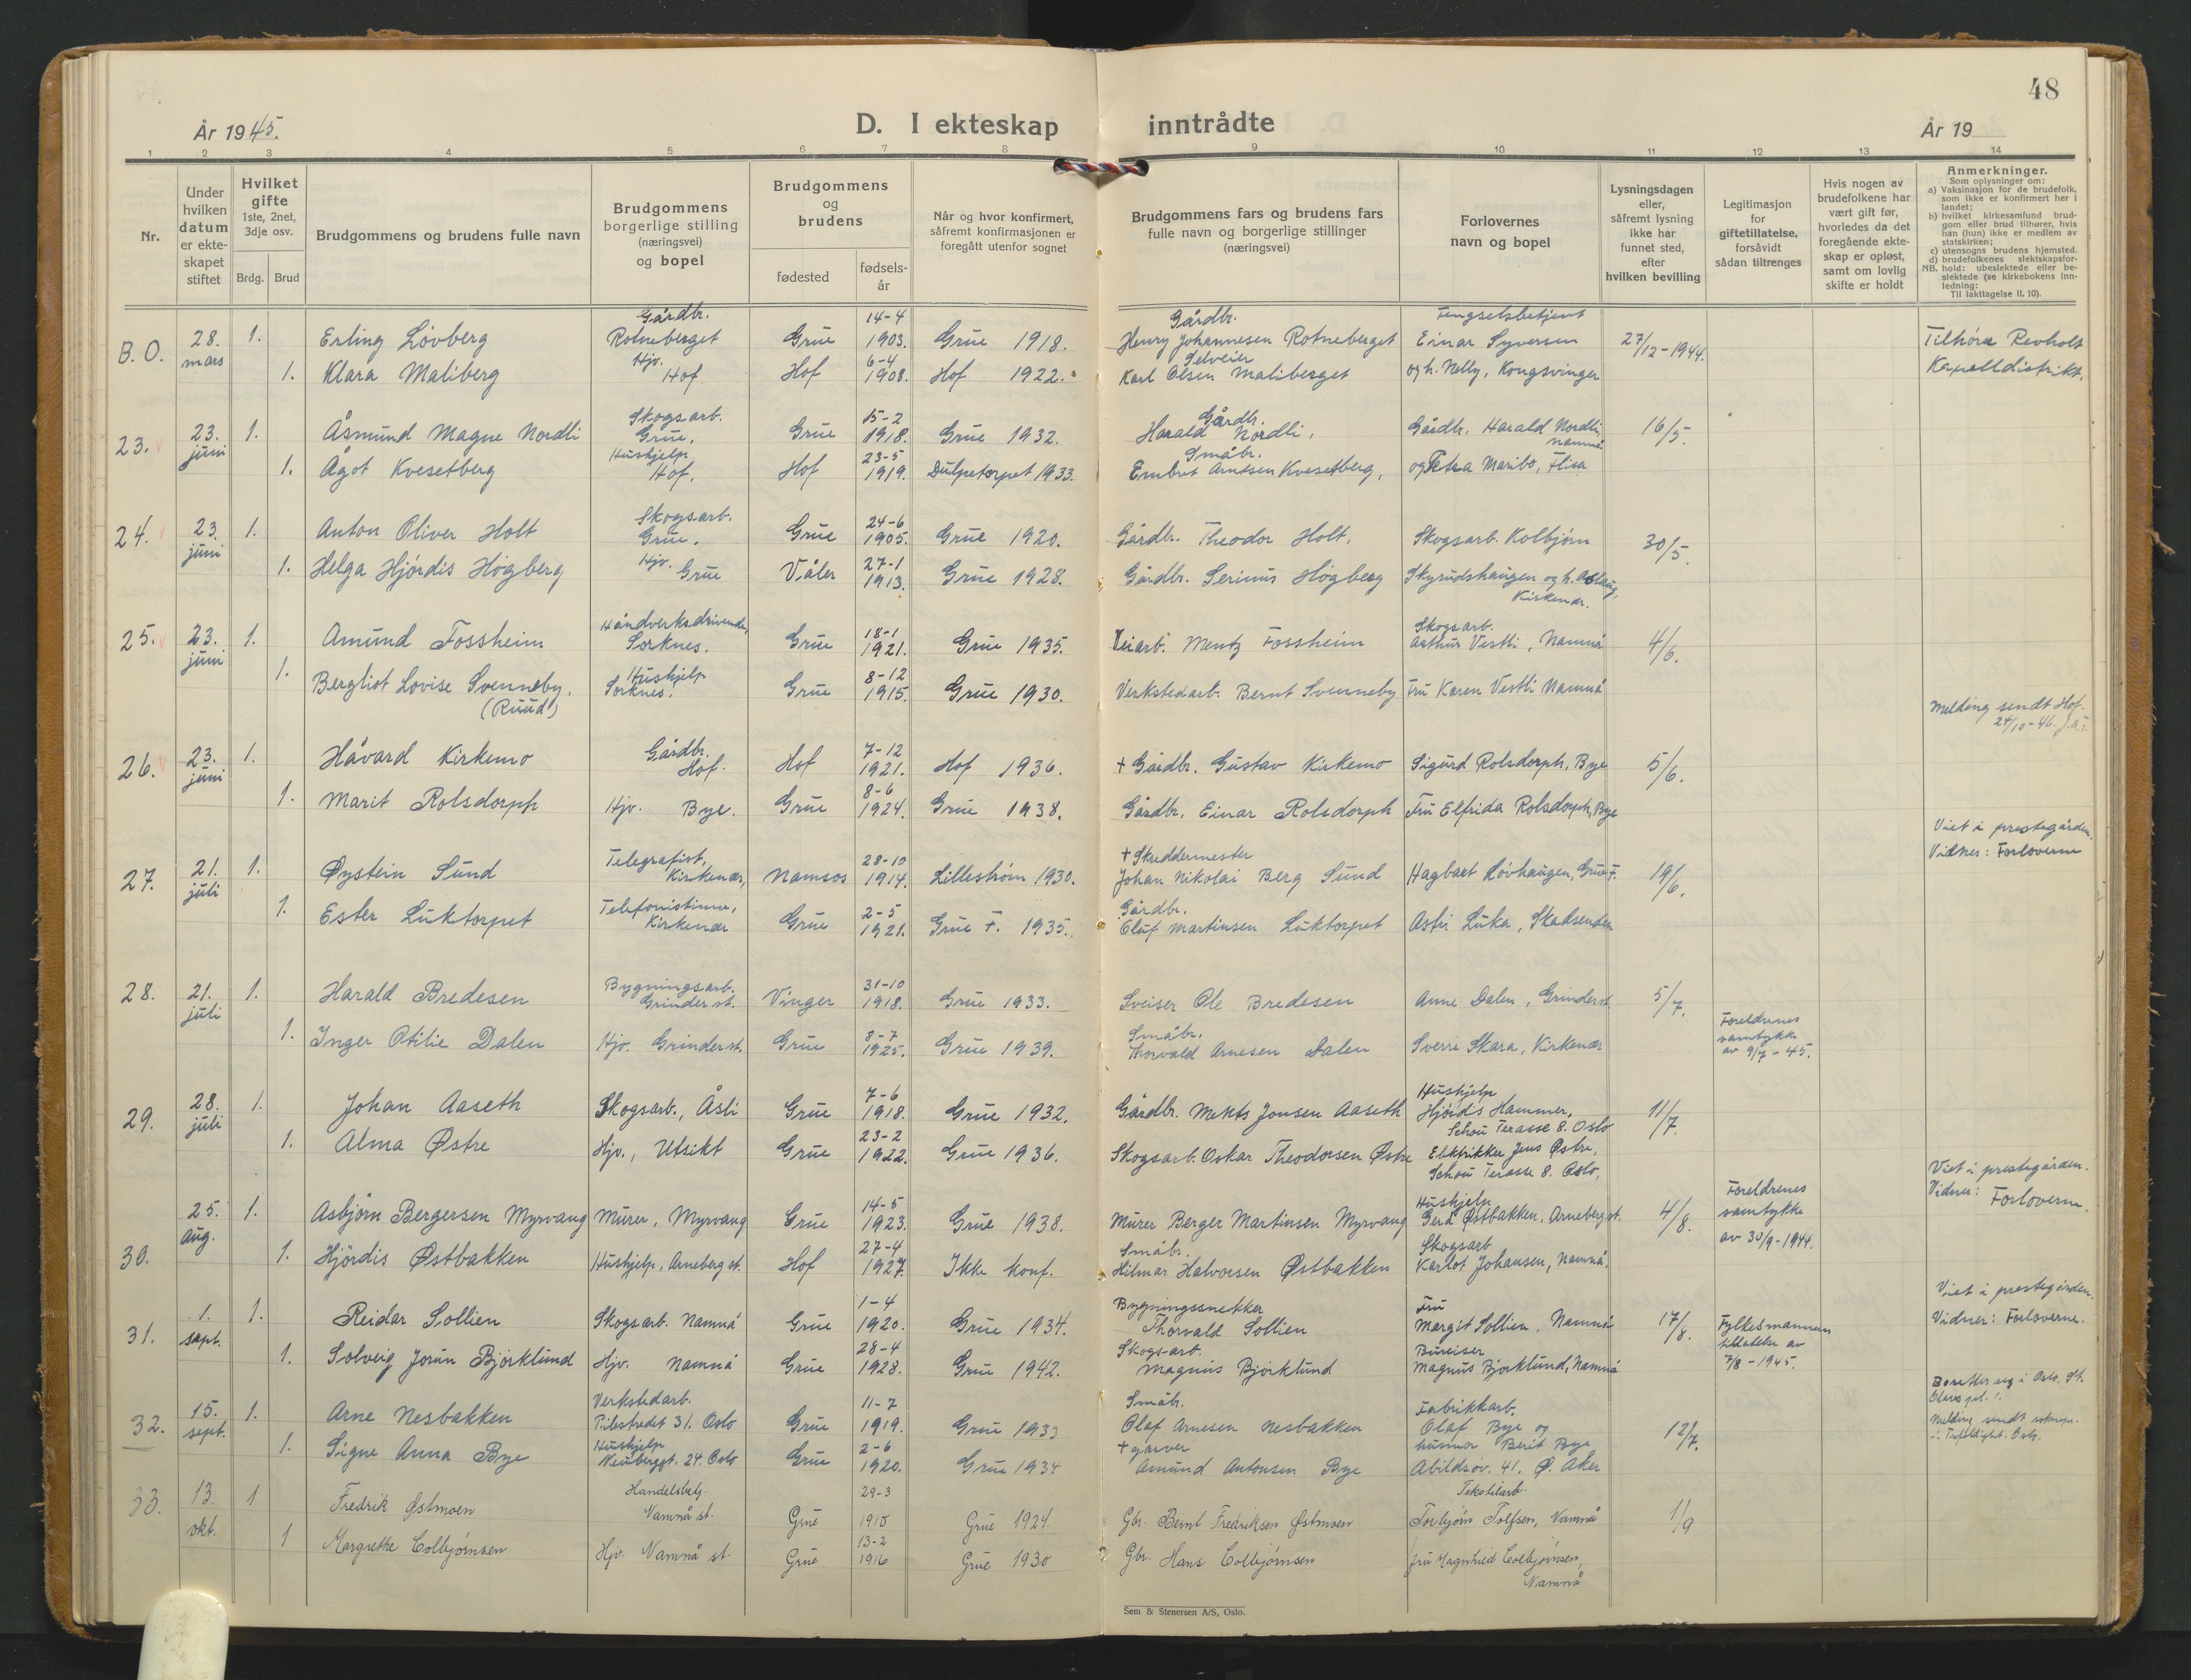 48
År 1945.
D. I ekteskap inntrådte
År 19
1 2 3 4 5 6 7 8 9 10 11 12 13 14
Nr.
Under hvilken datum er ekte-skapet stiftet
Hvilket gifte 1ste, 2net, 3dje osv.
Brdg. Brud
Brudgommens og brudens fulle navn
Brudgommens borgerlige stilling (næringsvei) og bopel
Brudgommens og brudens
fødested
fødsels-år
Når og hvor konfirmert, såfremt konfirmasjonen er foregått utenfor sognet
Brudgommens fars og brudens fars fulle navn og borgerlige stillinger (næringsvei)
Forlovernes navn og bopel
Lysningsdagen eller, såfremt lysning ikke har funnet sted, efter hvilken bevilling
Legitimasjon for giftetillatelse, forsåvidt sådan tiltrenges
Hvis nogen av brudefolkene har vært gift før, hvorledes da det foregående ekte-skap er opløst, samt om lovlig skifte er holdt
Anmerkninger.
Som oplysninger om:
a) Vaksinasjon for de brudefolk, som ikke er konfirmert her i landet;
b) hvilket kirkesamfund brud-gom eller brud tilhører, hvis han (hun) ikke er medlem av statskirken;
c) utensogns brudens hjemsted.
d) brudefolkenes slektskapsfor-
NB. hold: ubeslektede eller be-slektede (se kirkebokens inn-ledning:
Til iakttagelse II. 10).
B. O. 28. mars 1. Erling Lövberg Gårdbr. Rotneberget Grue 14-4 1903. Grue 1918. Gårdbr. Henry Johannesen Rotneberget Fengselsbetjent Einar Syversen 27/12-1944. Tilhöre Revholt
1. Klara Maliberg Hjv. Hof. Hof 6-4 1908. Hof 1922. Selveier Karl Olsen Maliberget og h. Nelly, Kongsvinger Kapelldistrikt.
23. 23. juni 1. Åsmund Magne Nordli Skogsarb. Grue. Grue 15-2 1918. Grue 1932. Gårdbr. Harald Nordli, Gårdbr. Harald Nordli, Namnå 16/5.
1. Ågot Kvesetberg Hushjelp Hof. Hof 23-5 1919. Dulpetorpet 1933. Småbr. Embret Arntsen Kvesetberg, og Petra Maribo, Flisa
24. 23. juni 1. Anton Oliver Holt Skogsarb. Grue. Grue 24-6 1905. Grue 1920. Gårdbr. Theodor Holt. Skogsarb. Kolbjörn 30/5.
1. Helga Hjördis Högberg Hjv. Grue Våler 27-1 1913. Grue 1928. Gårdbr. Serinus Högberg Skyrudshaugen og h. Aslaug, Kirkenær.
25. 23. juni 1. Amund Fossheim Håndverksdrivende, Sorknes. Grue 18-1 1921. Grue 1935. Veiarb. Mentz Fossheim Skogsarb. Arthur Vestli, Namnå 4/6.
1. Bergliot Lovise Svenneby. (Ruud) Hushjelp Sorknes. Grue 8-12 1915. Grue 1930. Verkstedarb. Bernt Svenneby Fru Karen Vestli Namnå
Melding sendt Hof. 24/10-46.
26. 23. juni 1. Håvard Kirkemo Gårdbr. Hof. Hof 7-12 1921. Hof 1936. + Gårdbr. Gustav Kirkemo Sigurd Rolsdorph, Bye 5/6.
1. Marit Rolsdorph Hjv. Bye. Grue 8-6 1924. Grue 1938. Gårdbr. Einar Rolsdorph Fru Elfrida Rolsdorph, Bye
Viet i prestegården.
Vidnes: Forloverne
27. 21. juli 1. Øystein Sund Telegrafist, Kirkenær, Namsos 28-10 1914. Lillestrøm 1930. + Skreddermester Johan Nikolai Berg Sund Hagbart Lövhaugen, Grue F. 19/6.
1. Ester Luktorpet Telefonistinne, Kirkenær Grue 2-5 1921. Grue F. 1935. Gårdbr. Eluf Martinsen Luktorpet Astri Luka, Skadsenden
28. 21. juli 1. Harald Bredesen Bygningsarb. Grinder st. Vinger 31-10 1918. Grue 1933. Sveiser Ole Bredesen Anne Dalen, Grinder st. 5/7.
1. Inger Otilie Dalen Hjv. Grinder st. Grue 8-7 1925. Grue 1939. Småbr. Thorvald Arnesen Dalen Sverre Skara, Kirkenær Foreldrenes samtykke av 9/7-45.
29. 28. juli 1. Johan Aaseth Skogsarb., Åsli Grue 7-6 1918. Grue 1932. Gårdbr. Jonsen Aaseth Hushjelp Hjördis Hammer, Schou Terasse 8. Oslo 11/7.
1. Alma Østre Hjv., Utsikt Grue 23-2 1922. Grue 1936. Skogsarb. Oskar Theodorsen Østre Elektrikker Jens Østre, Schou Terasse 8. Oslo,
Viet i prestegården.
Vidner: Forloverne.
30. 25. aug. 1. Asbjørn Bergersen Myrvang Murer, Myrvang Grue 14-5 1923. Grue 1938. Murer Berger Martinsen Myrvang Hushjelp Gerd Østbakken, Arneberg st. 4/8. Foreldrenes samtykke av 30/9-1944.
1. Hjördis Østbakken Hushjelp, Arneberg st. Hof 27-4 1927. Ikke konf. Småbr. Hilmar Halvorsen Østbakken Skogsarb Karlot Johansen, Namnå,
Viet i prestegården.
Vidner: Forloverne.
31. 1. sept. 1. Reidar Sollien Skogsarb. Namnå Grue 1-4 1920. Grue 1934. Bygningssnekker Thorvald Sollien Fru Margit Sollien, Namnå 17/8. Fylkesmannens tillatelse av 7/8-1945.
1. Solveig Jorun Björklund Hjv. Namnå Grue 28-4 1928. Grue 1942. Skogsarb. Magnus Björklund Bureiser Magnus Björklund, Namnå
32. 15. sept. 1. Arne Nesbakken Verkstedarb. Pilestredet 31. Oslo Grue 11-7 1919. Grue 1933 Småbr. Olaf Arnesen Nesbakken Fabrikkarb. Olaf Bye og 12/7. Bosetter seg i Oslo. St. Olavs
1. Signe Anna Bye Hushjelp Neuberggt. 24. Oslo Grue 2-6 1920. Grue 1934 + garver Amund Antonsen Bye husmor Berit Bye Abildsøv. 41. Ø. Aker Melding sendt Oslo.
33. 13. okt. 1 Fredrik Østmoen Handelsbetj. Namnå st. Grue 29-3 1910 Grue 1924. Gbr. Bernt Fredriksen Østmoen Tekstilarb. Torbjørn Tolfsen, Namnå 1/9
1 Margrethe Colbjørnsen Hjv. Namnå st. Grue 13-2 1916 Grue 1930 Gbr. Hans Colbjørnsen fru Magnhild Colbjørnsen, Namnå
Sem & Stenersen A/S, Oslo.